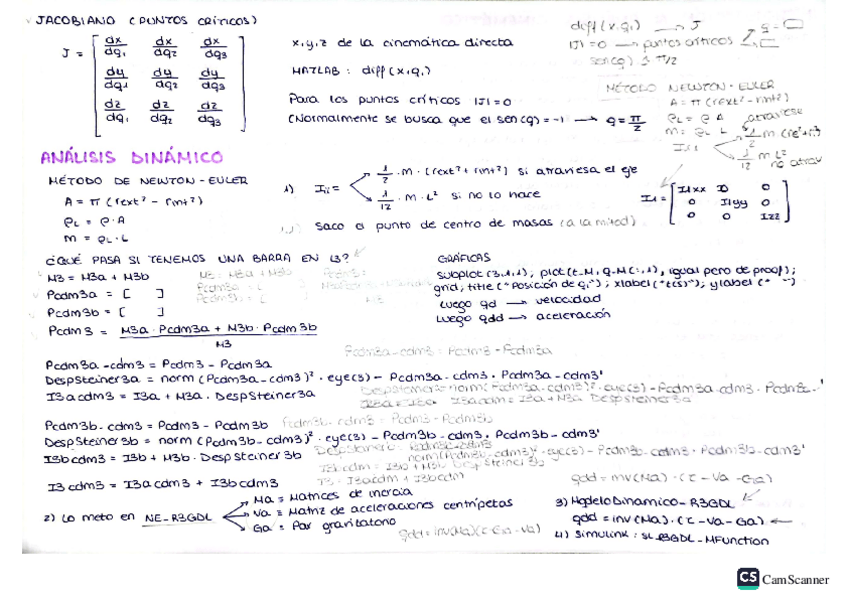 JACOBIANO (PUNTOS CRÍTICOS)
J = [ dx/dq1 dx/dq2 dx/dq3
dy/dq1 dy/dq2 dy/dq3
dz/dq1 dz/dq2 dz/dq3 ]
x,y,z de la cinemática directa
MATLAB: diff(x,q1)
Para los puntos críticos |J|=0
(Normalmente se busca que el sen(q)=-1 → q=π/2
diff(x,q1) → J
|J|=0 → puntos críticos
MÉTODO NEWTON-EULER
A=π(rext²-rint²)
ρL = ρ A
m = ρL L
atraviese
1/12 m L²
no atrav
ANÁLISIS DINÁMICO
MÉTODO DE NEWTON-EULER
A = π(rext² - rint²)
ρL = ρ·A
m = ρL·L
1) Iii = 1/2 · m · (rext² + rint²) si atraviesa el eje
1/12 · m · L² si no lo hace
I1 = [ I1xx 0 0
0 I1yy 0
0 0 I1zz ]
Saco a punto de centro de masas (a la mitad)
¿QUÉ PASA SI TENEMOS UNA BARRA EN L3?
M3 = M3a + M3b
Pcdm3a = [ ]
Pcdm3b = [ ]
Pcdm3 = M3a · Pcdm3a + M3b · Pcdm3b / M3
M3 = M3a + M3b
GRÁFICAS
subplot(3,1,1); plot(t-M, q-M(:,1), igual pero de proof);
grid; title("Posición de q1"); xlabel("t(s)"); ylabel(" ")
Luego qd → velocidad
Luego qdd → aceleración
Pcdm3a-cdm3 = Pcdm3 - Pcdm3a
Pcdm3a-cdm3 = Pcdm3 - Pcdm3a
DespSteiner3a = norm(Pcdm3a-cdm3)² · eye(3) - Pcdm3a-cdm3 · Pcdm3a-cdm3'
I3acdm3 = I3a + M3a · DespSteiner3a
Pcdm3b-cdm3 = Pcdm3 - Pcdm3b
DespSteiner3b = norm(Pcdm3b-cdm3)² · eye(3) - Pcdm3b-cdm3 · Pcdm3b-cdm3'
I3bcdm3 = I3b + M3b · DespSteiner3b
I3cdm3 = I3acdm3 + I3bcdm3
2) Lo meto en NE-R3GDL
Ma = Matrices de inercia
Va = Matriz de aceleraciones centrípetas
Ga = Par gravitatorio
qdd = inv(Ma)·(τ-Va-Ga)
3) ModeloDinamico-R3GDL
qdd = inv(Ma)·(τ-Va-Ga)
4) Simulink: SL_R3GDL_MFunction
CS CamScanner